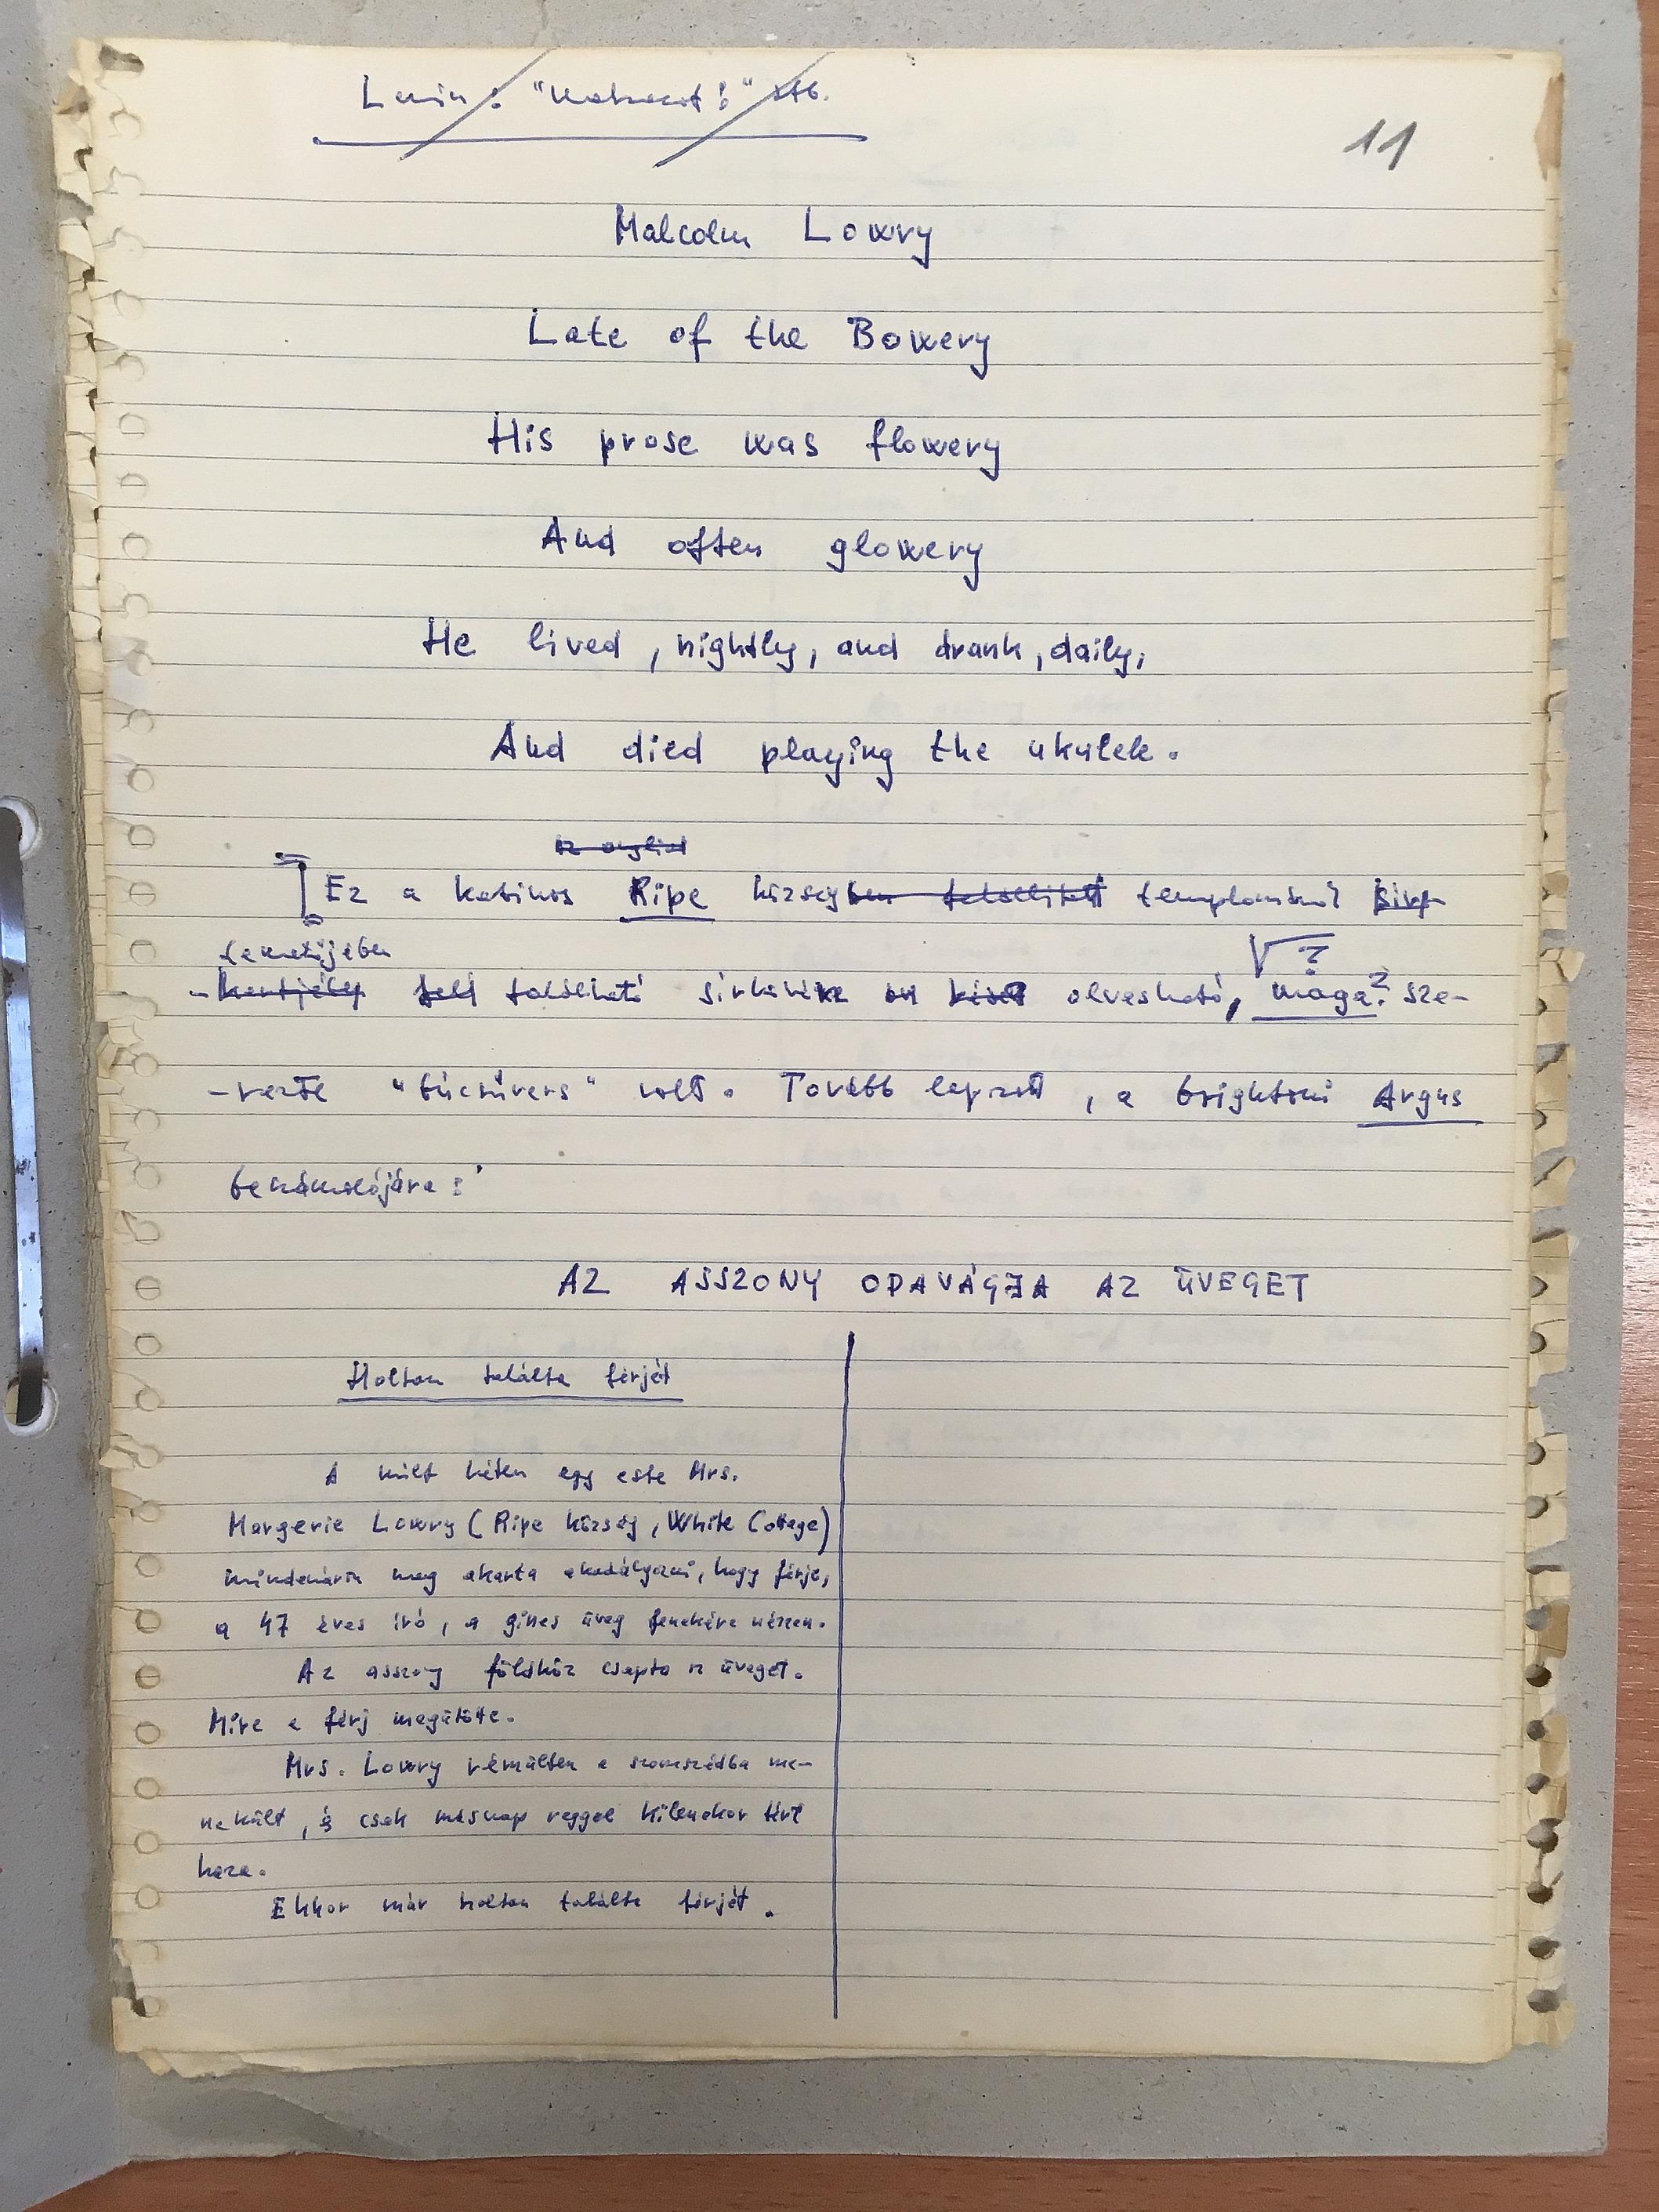 11
Malcolm Lowry
Late of the Bowery
His prose was flowery
And often glowery
He lived, nightly, and drank, daily,
And died playing the ukulele.
az angliai
Ez a kétsinos Ripe községben felállított templomának
temetőjében
található sírköve olvasható, maga? sze-
-rezte "búcsúvers" volt. Tovább lapozva, a brightoni Argus
beszámolójára:
AZ ASSZONY ODAVÁGJA AZ ÜVEGET
Holtan találta férjét
A múlt héten egy este Mrs.
Margerie Lowry (Ripe község, White Cottage)
mindenáron meg akarta akadályozni, hogy férje,
a 47 éves író, a gines üveg fenekére nézzen.
Az asszony földhöz csapta az üveget.
Mire a férj megütötte.
Mrs. Lowry rémülten a szomszédba me-
nekült, és csak másnap reggel kilenckor tért
haza.
Ekkor már holtan találta férjét.